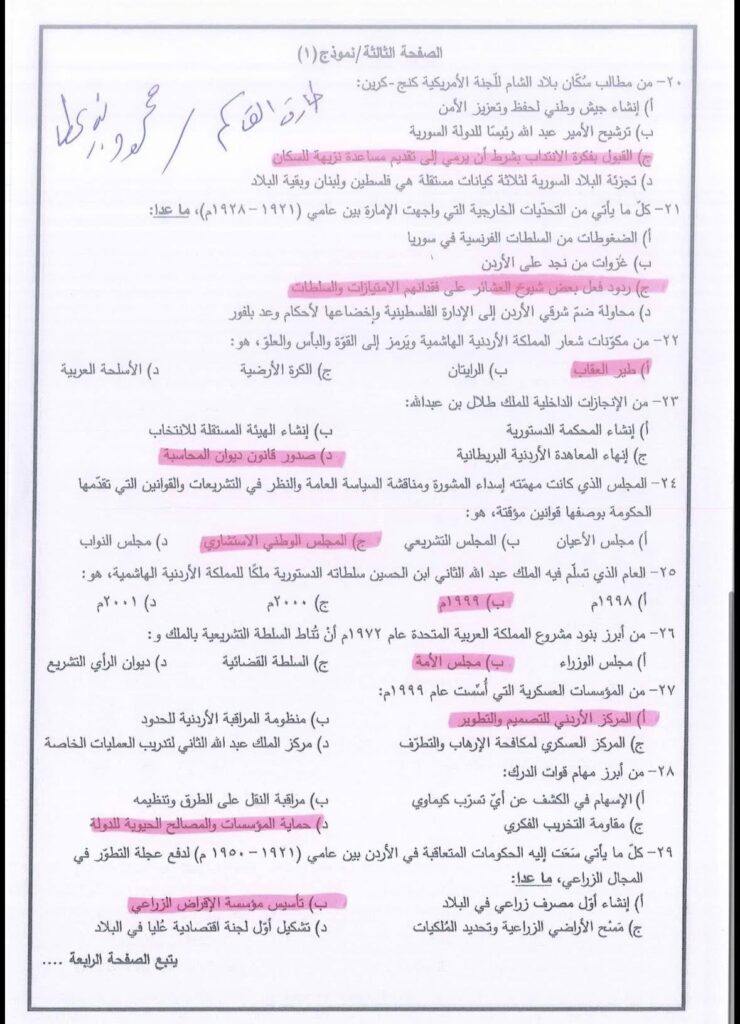 الصفحة الثالثة/نموذج(١)
٢٠- من مطالب سُكّان بلاد الشام للّجنة الأمريكية كنج-كرين:
أ) إنشاء جيش وطني لحفظ وتعزيز الأمن
ب) ترشيح الأمير عبد الله رئيسًا للدولة السورية
ج) القبول بفكرة الانتداب بشرط أن يرمي إلى تقديم مساعدة نزيهة للسكان
د) تجزئة البلاد السورية لثلاثة كيانات مستقلة هي فلسطين ولبنان وبقية البلاد
طارق القاسم /
٢١- كلّ ما يأتي من التحدّيات الخارجية التي واجهت الإمارة بين عامي (١٩٢١ – ١٩٢٨م)، ما عدا:
أ) الضغوطات من السلطات الفرنسية في سوريا
ب) غَزَوات من نجد على الأردن
ج) ردود فعل بعض شيوخ العشائر على فقدانهم الامتيازات والسلطات
د) محاولة ضمّ شرقي الأردن إلى الإدارة الفلسطينية وإخضاعها لأحكام وعد بلفور
٢٢- من مكوّنات شعار المملكة الأردنية الهاشمية ويَرمز إلى القوّة والبأس والعلوّ، هو:
أ) طير العقاب ب) الرايتان ج) الكرة الأرضية د) الأسلحة العربية
٢٣- من الإنجازات الداخلية للملك طلال بن عبدالله:
أ) إنشاء المحكمة الدستورية ب) إنشاء الهيئة المستقلة للانتخاب
ج) إنهاء المعاهدة الأردنية البريطانية د) صدور قانون ديوان المحاسبة
٢٤- المجلس الذي كانت مهمّته إسداء المشورة ومناقشة السياسة العامة والنظر في التشريعات والقوانين التي تقدّمها
الحكومة بوصفها قوانين مؤقتة، هو:
أ) مجلس الأعيان ب) المجلس التشريعي ج) المجلس الوطني الاستشاري د) مجلس النواب
٢٥- العام الذي تسلّم فيه الملك عبد الله الثاني ابن الحسين سلطاته الدستورية ملكًا للمملكة الأردنية الهاشمية، هو:
أ) ١٩٩٨م ب) ١٩٩٩م ج) ٢٠٠٠م د) ٢٠٠١م
٢٦- من أبرز بنود مشروع المملكة العربية المتحدة عام ١٩٧٢م أنْ تُناط السلطة التشريعية بالملك و:
أ) مجلس الوزراء ب) مجلس الأمة ج) السلطة القضائية د) ديوان الرأي التشريع
٢٧- من المؤسسات العسكرية التي أُسّست عام ١٩٩٩م:
أ) المركز الأردني للتصميم والتطوير ب) منظومة المراقبة الأردنية للحدود
ج) المركز العسكري لمكافحة الإرهاب والتطرّف د) مركز الملك عبد الله الثاني لتدريب العمليات الخاصة
٢٨- من أبرز مهام قوات الدرك:
أ) الإسهام في الكشف عن أيّ تسرّب كيماوي ب) مراقبة النقل على الطرق وتنظيمه
ج) مقاومة التخريب الفكري د) حماية المؤسسات والمصالح الحيوية للدولة
٢٩- كلّ ما يأتي سَعَت إليه الحكومات المتعاقبة في الأردن بين عامي (١٩٢١ – ١٩٥٠ م) لدفع عجلة التطوّر في
المجال الزراعي، ما عدا:
أ) إنشاء أوّل مصرف زراعي في البلاد ب) تأسيس مؤسسة الإقراض الزراعي
ج) مَسْح الأراضي الزراعية وتحديد المُلكيات د) تشكيل أوّل لجنة اقتصادية عُليا في البلاد
يتبع الصفحة الرابعة ....